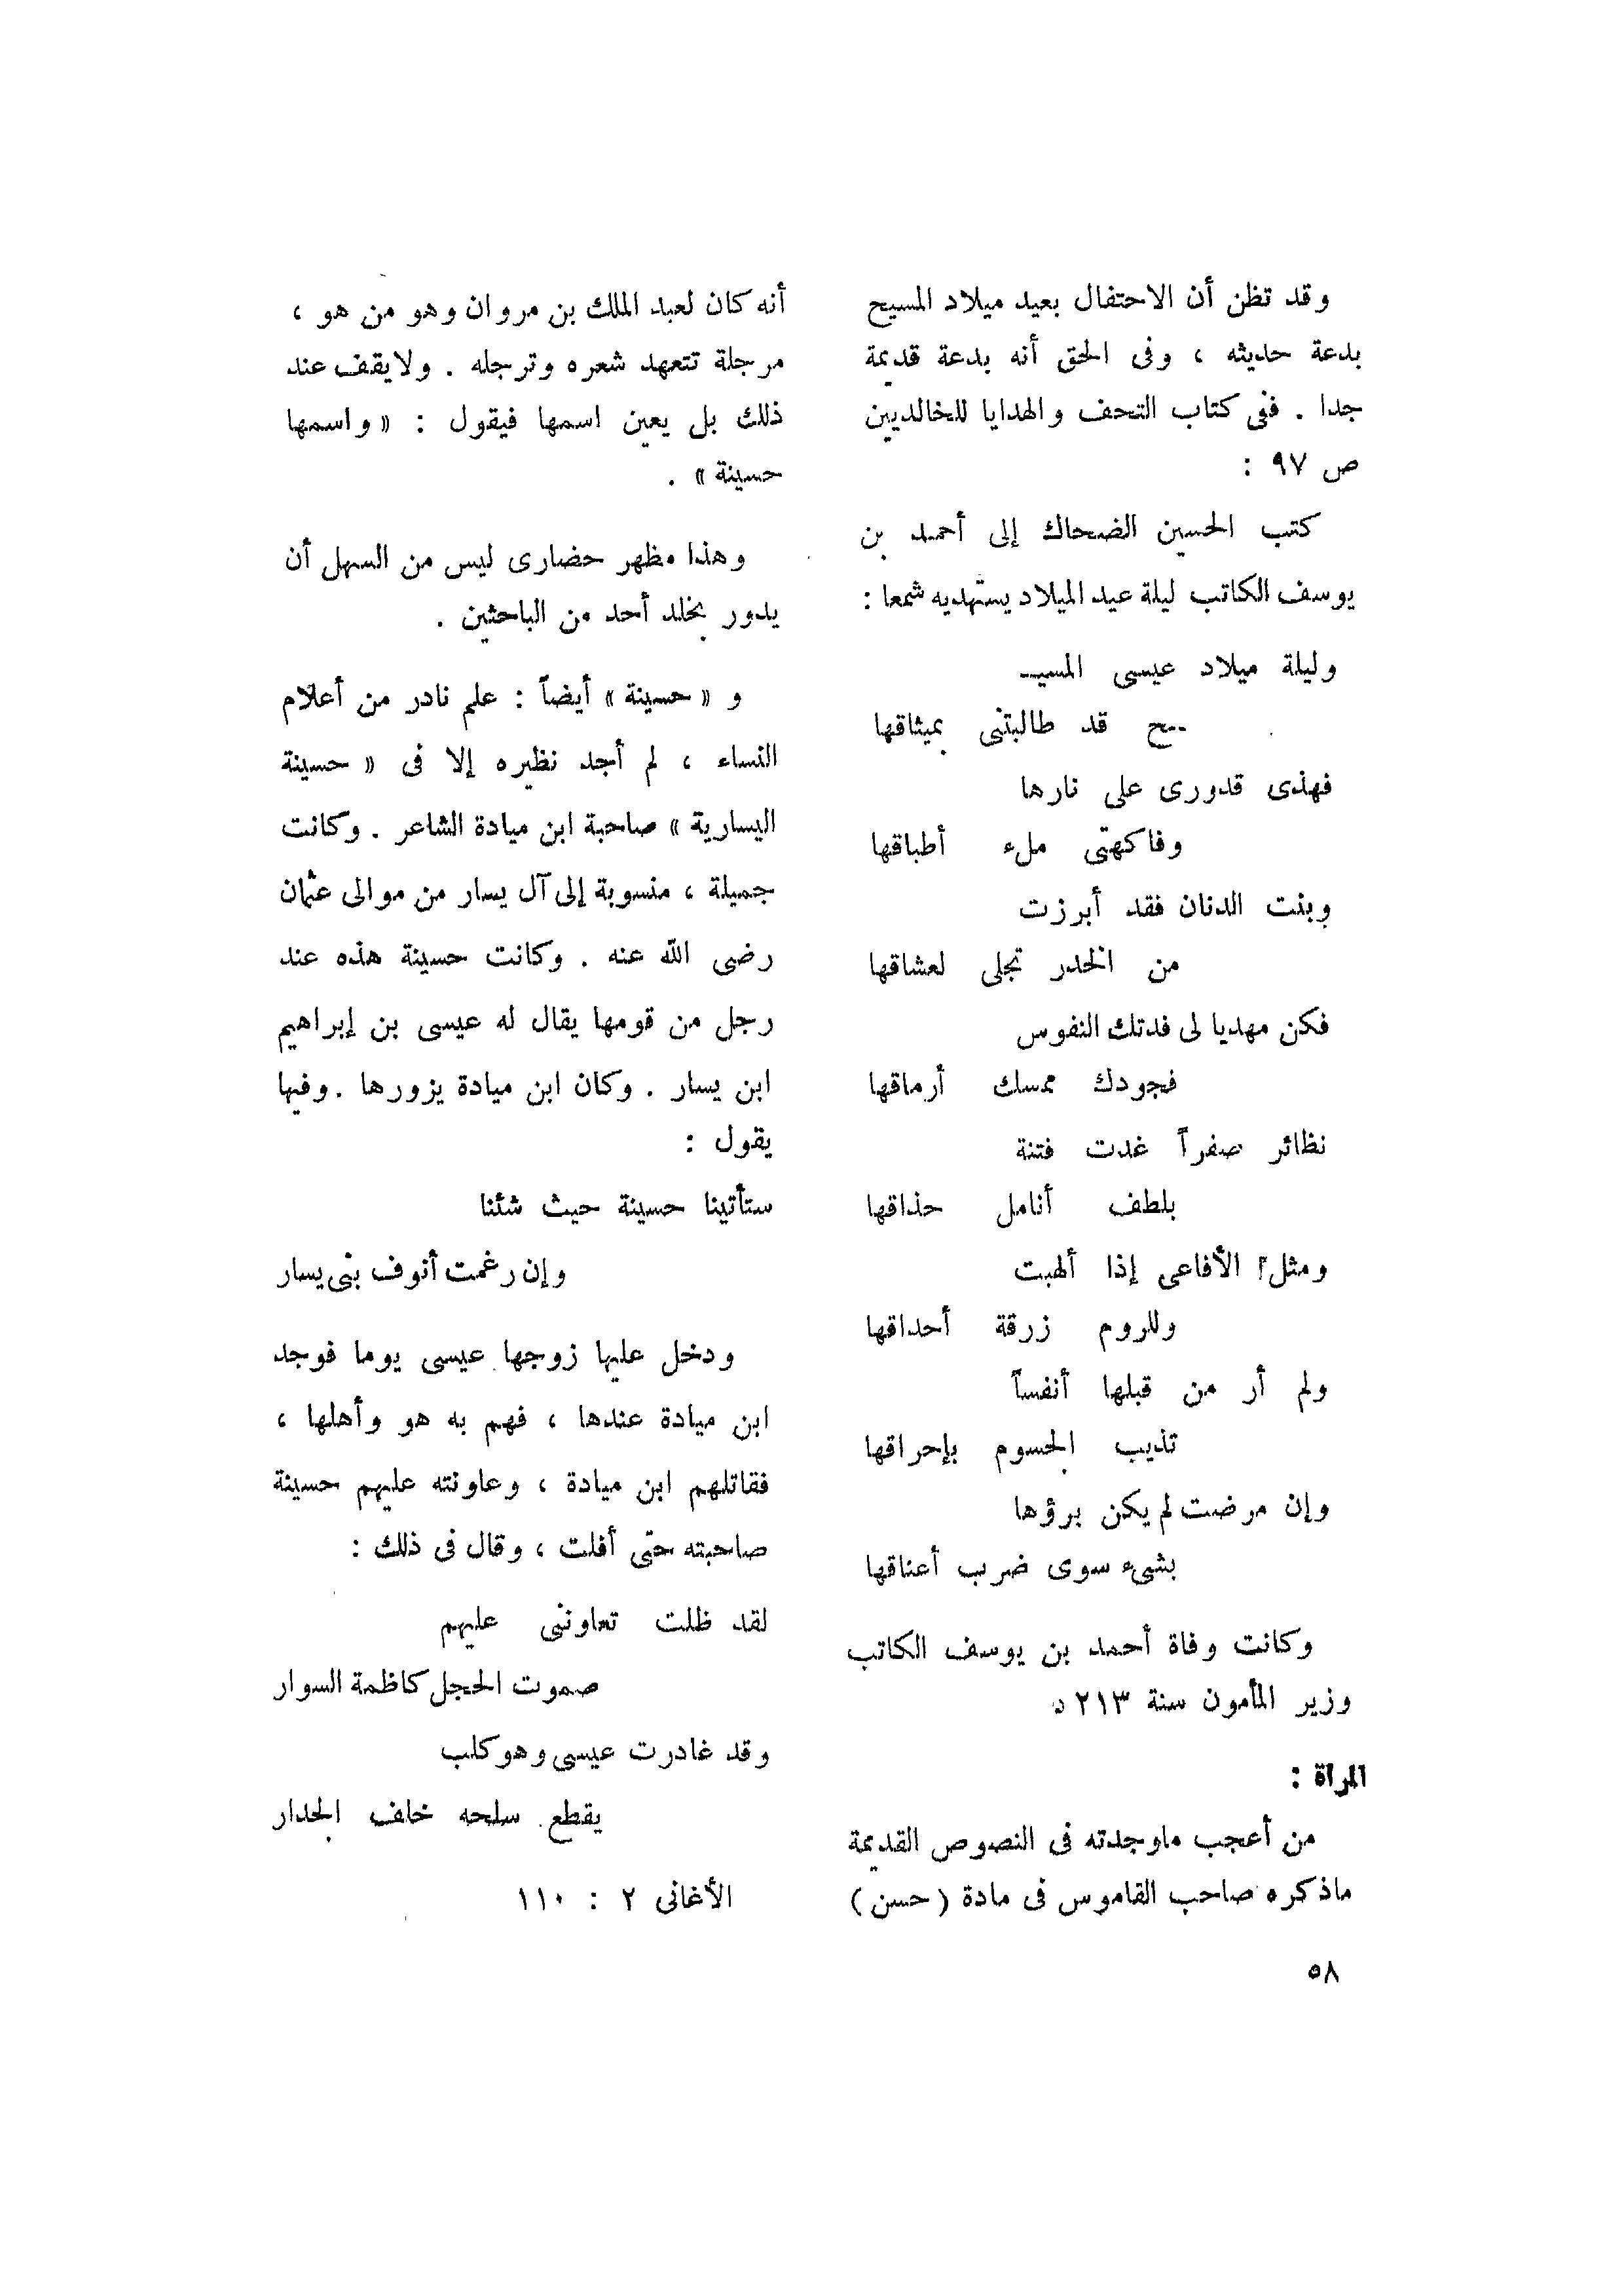 وقد تظن أن الاحتفال بعيد ميلاد المسيح
بدعة حديثه ، وفى الحق أنه بدعة قديمة
جدا . ففى كتاب التحف والهدايا للخالديين
ص ٩٧ :
كتب الحسين الضحاك إلى أحمد بن
يوسف الكاتب ليلة عيد الميلاد يستهديه شمعا :
وليلة ميلاد عيسى المسيـ
ـح قد طالبتنى بميثاقها
فهذى قدورى على نارها
وفاكهتى ملء أطباقها
وبنت الدنان فقد أبرزت
من الخدر تجلى لعشاقها
فكن مهديا لى فدتك النفوس
فجودك ممسك أرماقها
نظائر صفراً غدت فتنة
بلطف أنامل حذاقها
ومثل الأفاعى إذا ألهبت
وللروم زرقة أحداقها
ولم أر من قبلها أنفساً
تذيب الجسوم بإحراقها
وإن مرضت لم يكن برؤها
بشىء سوى ضرب أعناقها
وكانت وفاة أحمد بن يوسف الكاتب
وزير المأمون سنة ٢١٣ ه
المرأة :
من أعجب ماوجدته فى النصوص القديمة
ماذكره صاحب القاموس فى مادة ( حسن )
أنه كان لعبد الملك بن مروان وهو من هو ،
مرجلة تتعهد شعره وترجله . ولايقف عند
ذلك بل يعين اسمها فيقول : « واسمها
حسينة » .
وهذا مظهر حضارى ليس من السهل أن
يدور بخلد أحد من الباحثين .
و « حسينة » أيضاً : علم نادر من أعلام
النساء ، لم أجد نظيره إلا فى « حسينة
اليسارية » صاحبة ابن ميادة الشاعر . وكانت
جميلة ، منسوبة إلى آل يسار من موالى عثمان
رضى الله عنه . وكانت حسينة هذه عند
رجل من قومها يقال له عيسى بن إبراهيم
ابن يسار . وكان ابن ميادة يزورها . وفيها
يقول :
ستأتينا حسينة حيث شئنا
وإن رغمت أنوف بنى يسار
ودخل عليها زوجها عيسى يوما فوجد
ابن ميادة عندها ، فهم به هو وأهلها ،
فقاتلهم ابن ميادة ، وعاونته عليهم حسينة
صاحبته حتى أفلت ، وقال فى ذلك :
لقد ظلت تعاوننى عليهم
صموت الحجل كاظمة السوار
وقد غادرت عيسى وهو كلب
يقطع سلحه خلف الجدار
الأغانى ٢ : ١١٠
٥٨